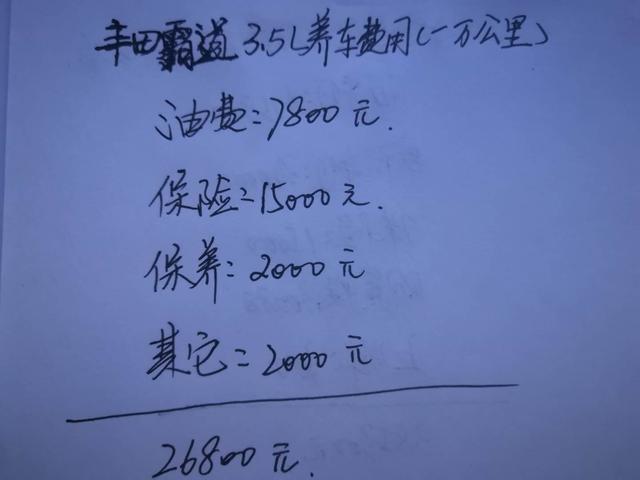 丰田霸道3.5L养车费用(一万公里)
油费=7800元.
保险=15000元.
保养=2000元
其它=2000元
26800元.